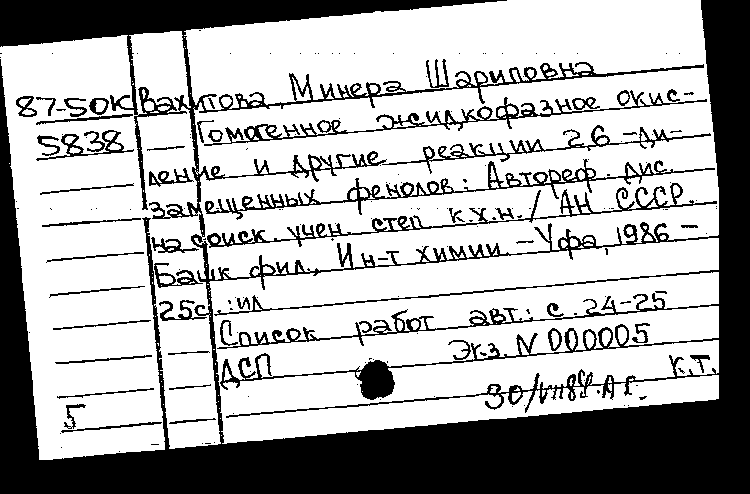 87-50К Вахитова, Минера Шариповна
5838 Гомогенное жидкофазное окис-
ление и другие реакции 2,6-ди-
замещенных фенолов: Автореф. дис.
на соиск. учен. степ к.х.н. / АН СССР.
Башк фил., Ин-т химии. - Уфа, 1986 -
25с.: ил
Список работ авт.: с. 24-25
ДСП Экз. N 000005
К.Т.
5